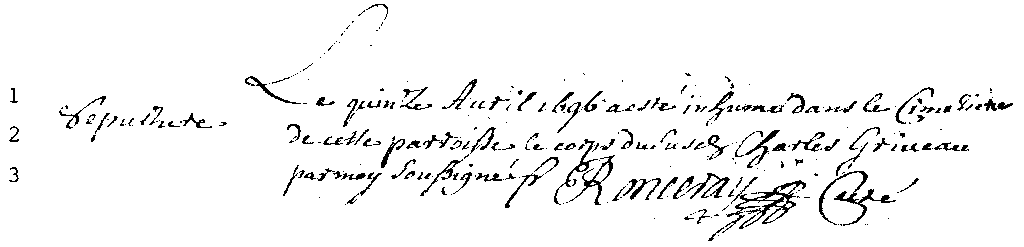 1 Le quinze Avril 1696 a esté inhumé dans le Cimetiere
2 Sepulture. de cette parroisse le corps du susd Charles Griveau
3 par moy soussigné f Ronceray Curé